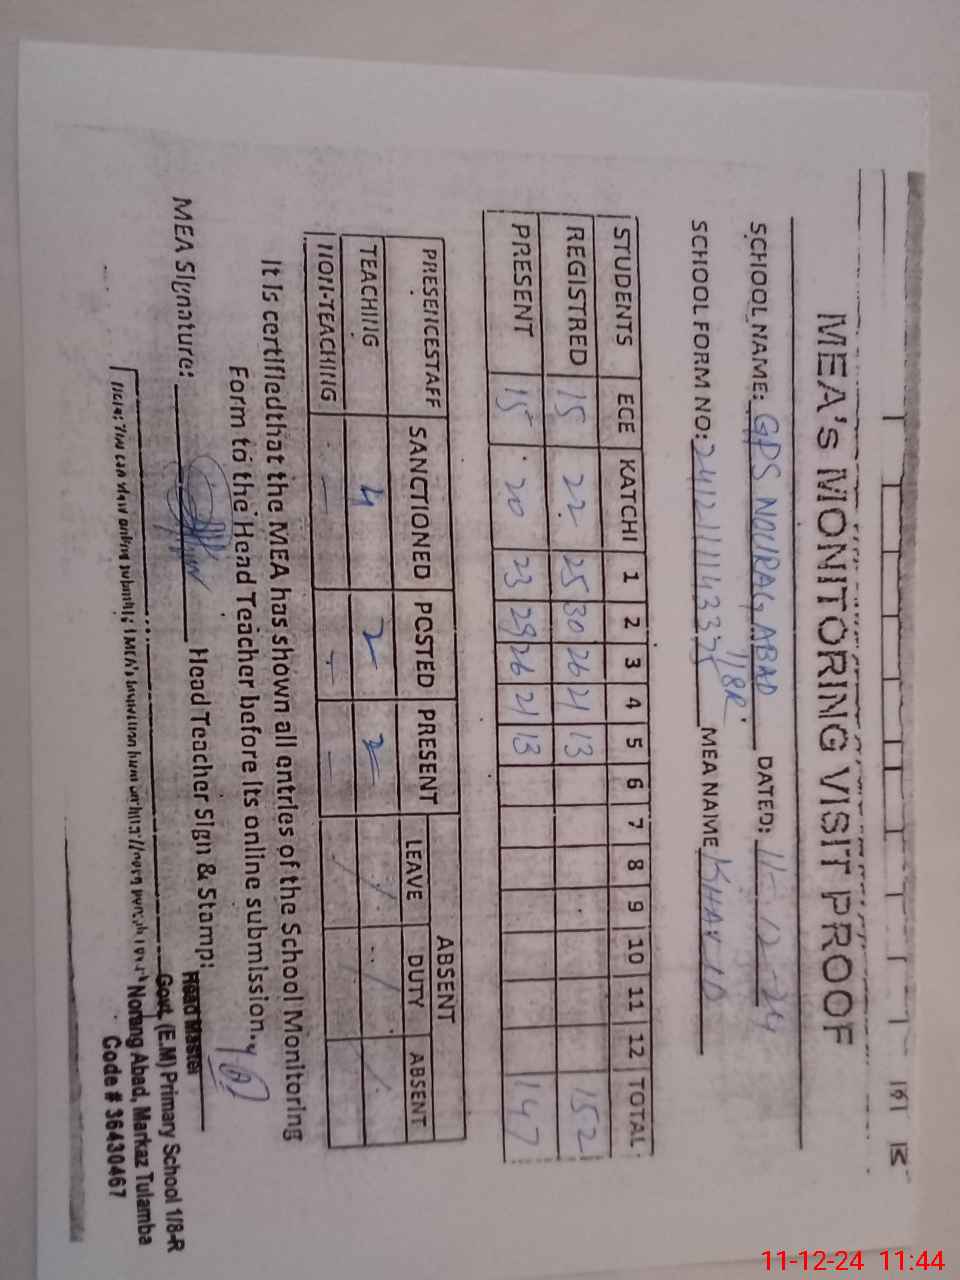 MEA's MONITORING VISIT PROOF
SCHOOL NAME: GPS NOURAG ABAD 1/8R DATED: 11-12-24
SCHOOL FORM NO: MEA NAME
STUDENTS ECE KATCHI 1 2 3 4 5 6 7 8 9 10 11 12 TOTAL
REGISTRED 15 22 25 30 26 21 13 152
PRESENT 15 20 23 29 26 21 13 147
PRESENCESTAFF SANCTIONED POSTED PRESENT ABSENT
LEAVE DUTY ABSENT
TEACHING 4 2 2
NON-TEACHING - - -
It is certifiedthat the MEA has shown all entries of the School Monitoring
Form to the Head Teacher before its online submission.
MEA Signature: Head Teacher Sign & Stamp:
Head Master
Govt. (E.M) Primary School 1/8-R
Norang Abad, Markaz Tulamba
Code # 36430467
Note: You can view online
11-12-24 11:44